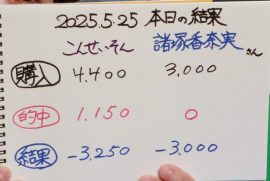 2025.5.25 本日の結果
こんせいそん 諸塚香奈実さん
購入 4,400 3,000
的中 1,150 0
結果 -3,250 -3,000